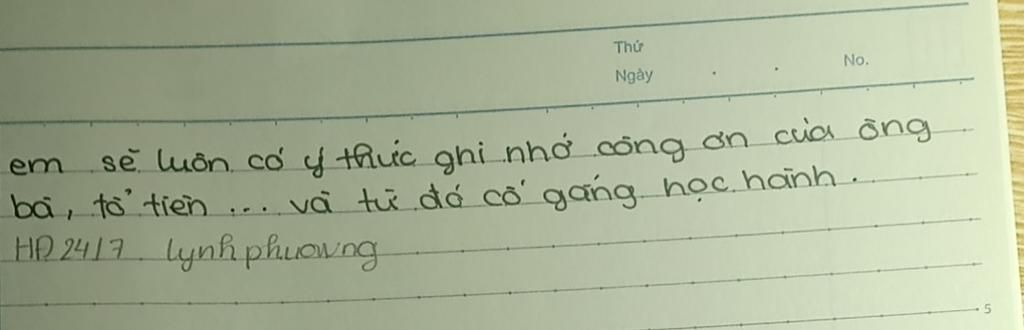 Thứ
Ngày . . No.
em sẽ luôn có ý thức ghi nhớ công ơn của ông
bà, tổ tiên ... và từ đó cố gắng học hành.
HD 24/7 lynhphuowng
5